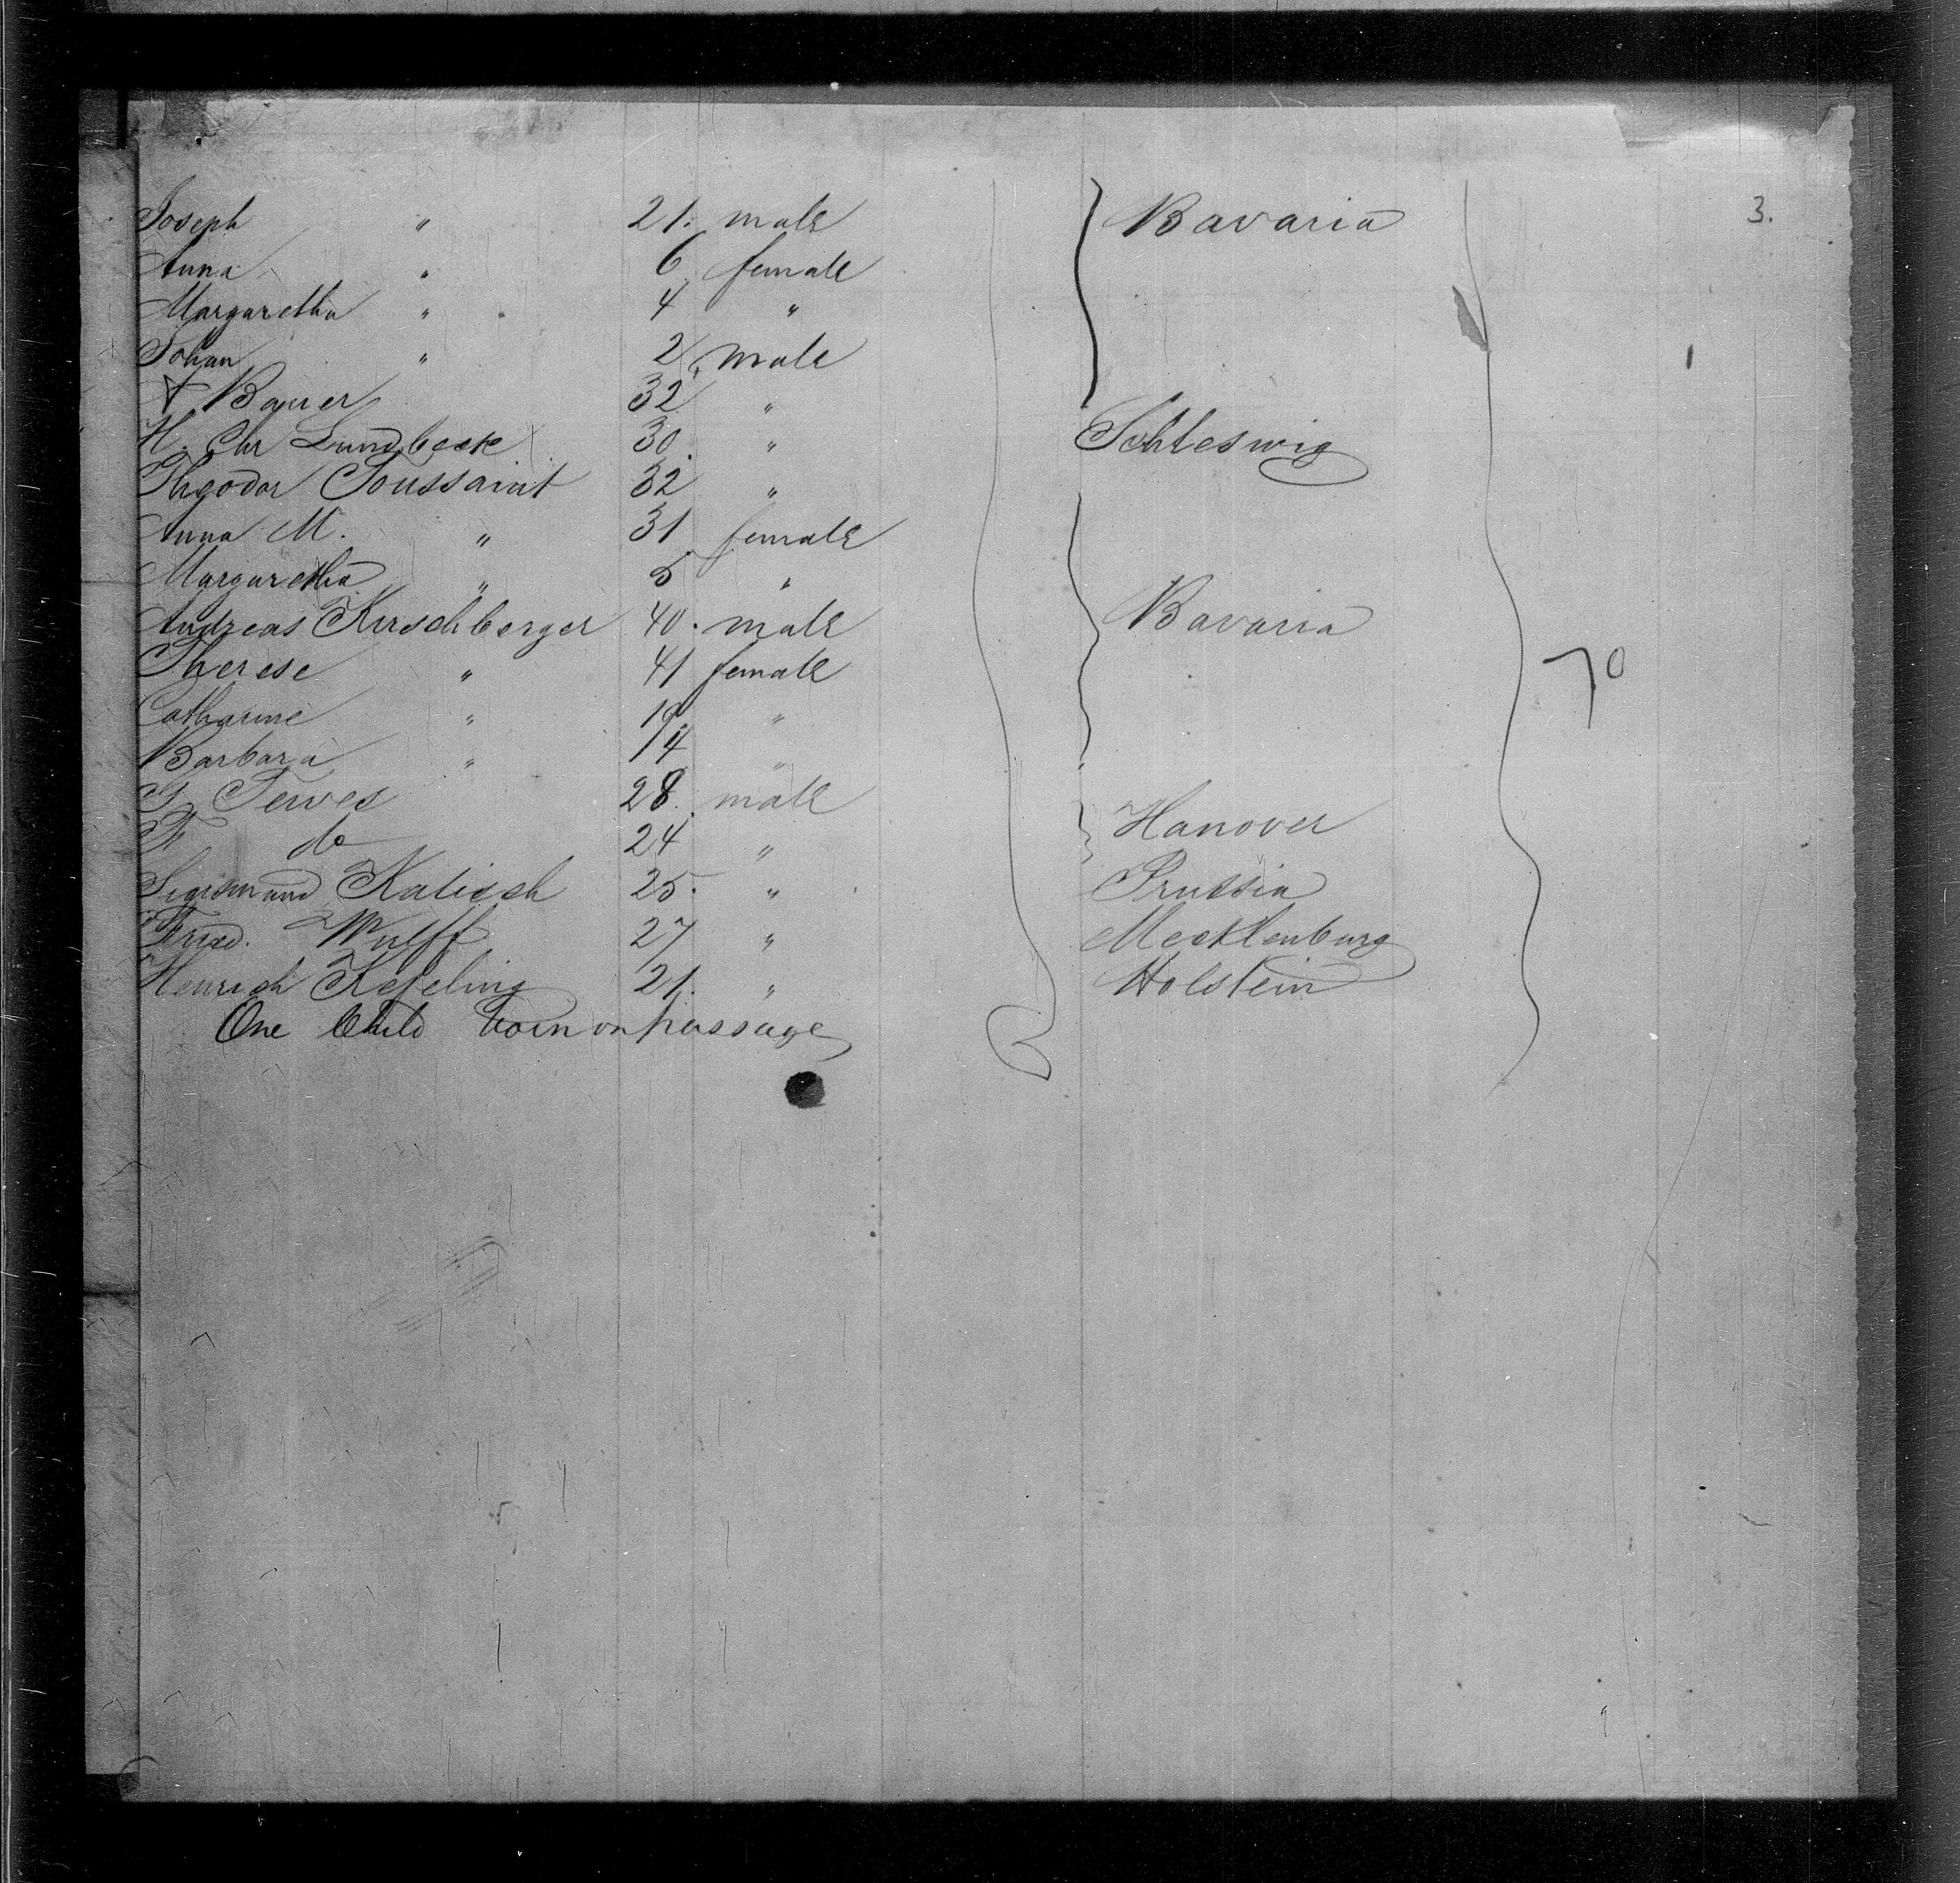 Joseph " 21. male Bavaria 3.
Anna " 6 female
Margaretha " 4 "
Johan " 2 male
A Bauer 32 "
H. Chr Lundbeck 30 " Schleswig
Theodor Toussaint 32 "
Anna M. " 31 female
Margaretha " 5 "
Andreas Kirschberger 40. male Bavaria
Therese " 41 female 70
Catharine " 19 "
Barbara " 14 "
Tewes 28. male
F do 24 " Hanover
Sigismund Kalisch 25. " Prussia
Fried. Wulff 27 " Mecklenburg
Henrich 21. " Holstein
One Child born on passage